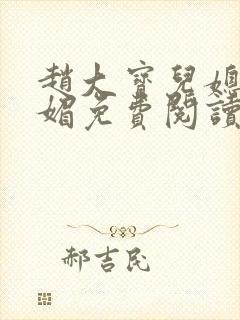 趙大寶兒媳
媚免費閱讀
郝吉民